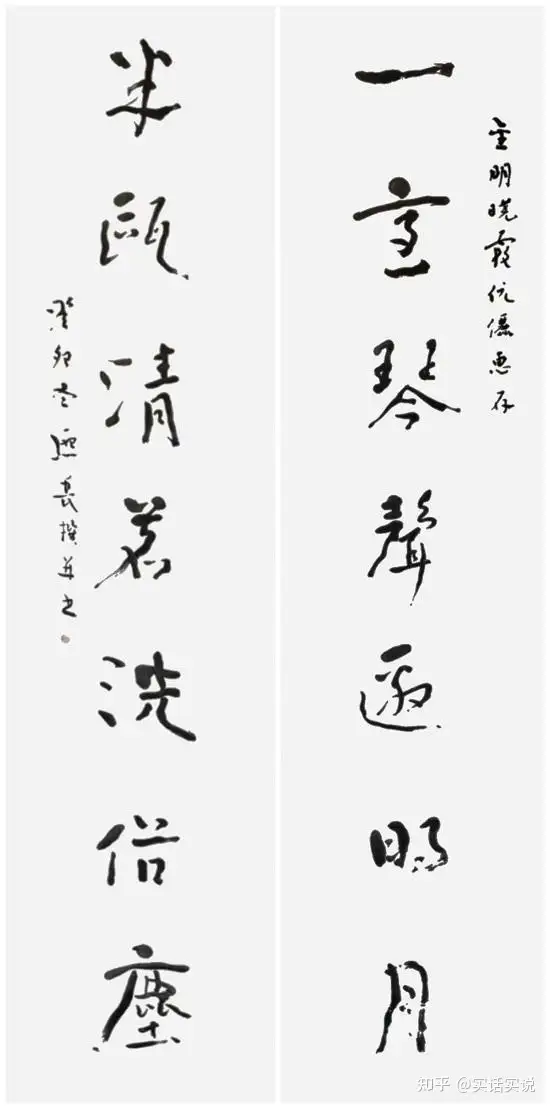 金明曉霞伉儷惠存
一室琴聲邀明月
半甌清茗洗俗塵
癸卯 長撰並书
知乎 @实话实说